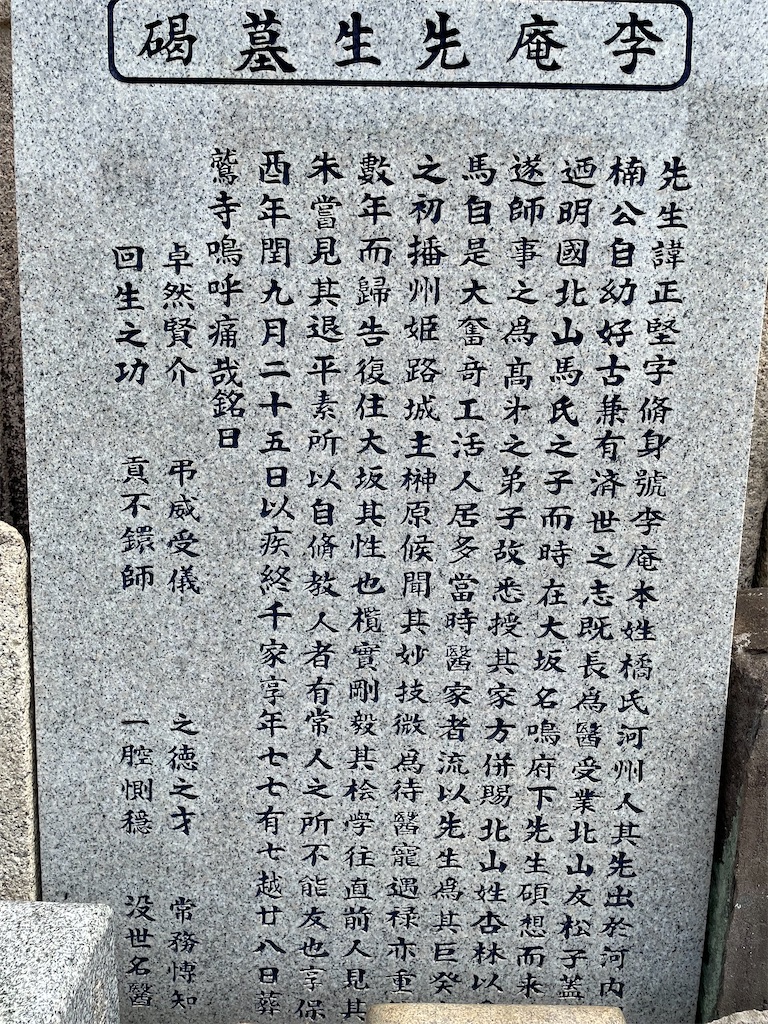 李庵先生墓碣
先生諱正堅字脩身號李庵本姓橘氏河州人其先出於河內
楠公自幼好古兼有済世之志既長為醫受業北山友松子蓋
迺明國北山馬氏之子而時在大坂名鳴府下先生碩想而来
遂師事之為髙弟之弟子故悉授其家方併賜北山姓杏林以
馬自是大奮奇工活人居多當時醫家者流以先生為其巨癸
之初播州姫路城主榊原候聞其妙技徴為待醫寵遇禄亦重
數年而歸告復住大坂其性也欖實剛毅其桧学往直前人見其
朱嘗見其退平素所以自脩教人者有常人之所不能友也享保
酉年閏九月二十五日以疾終千家享年七七有七越廿八日葬
鷲寺鳴呼痛哉銘日
卓然賢介 弔威受儀 之徳之才 常務愽知
回生之功 貢不鐶師 一腔惻穏 没世名醫